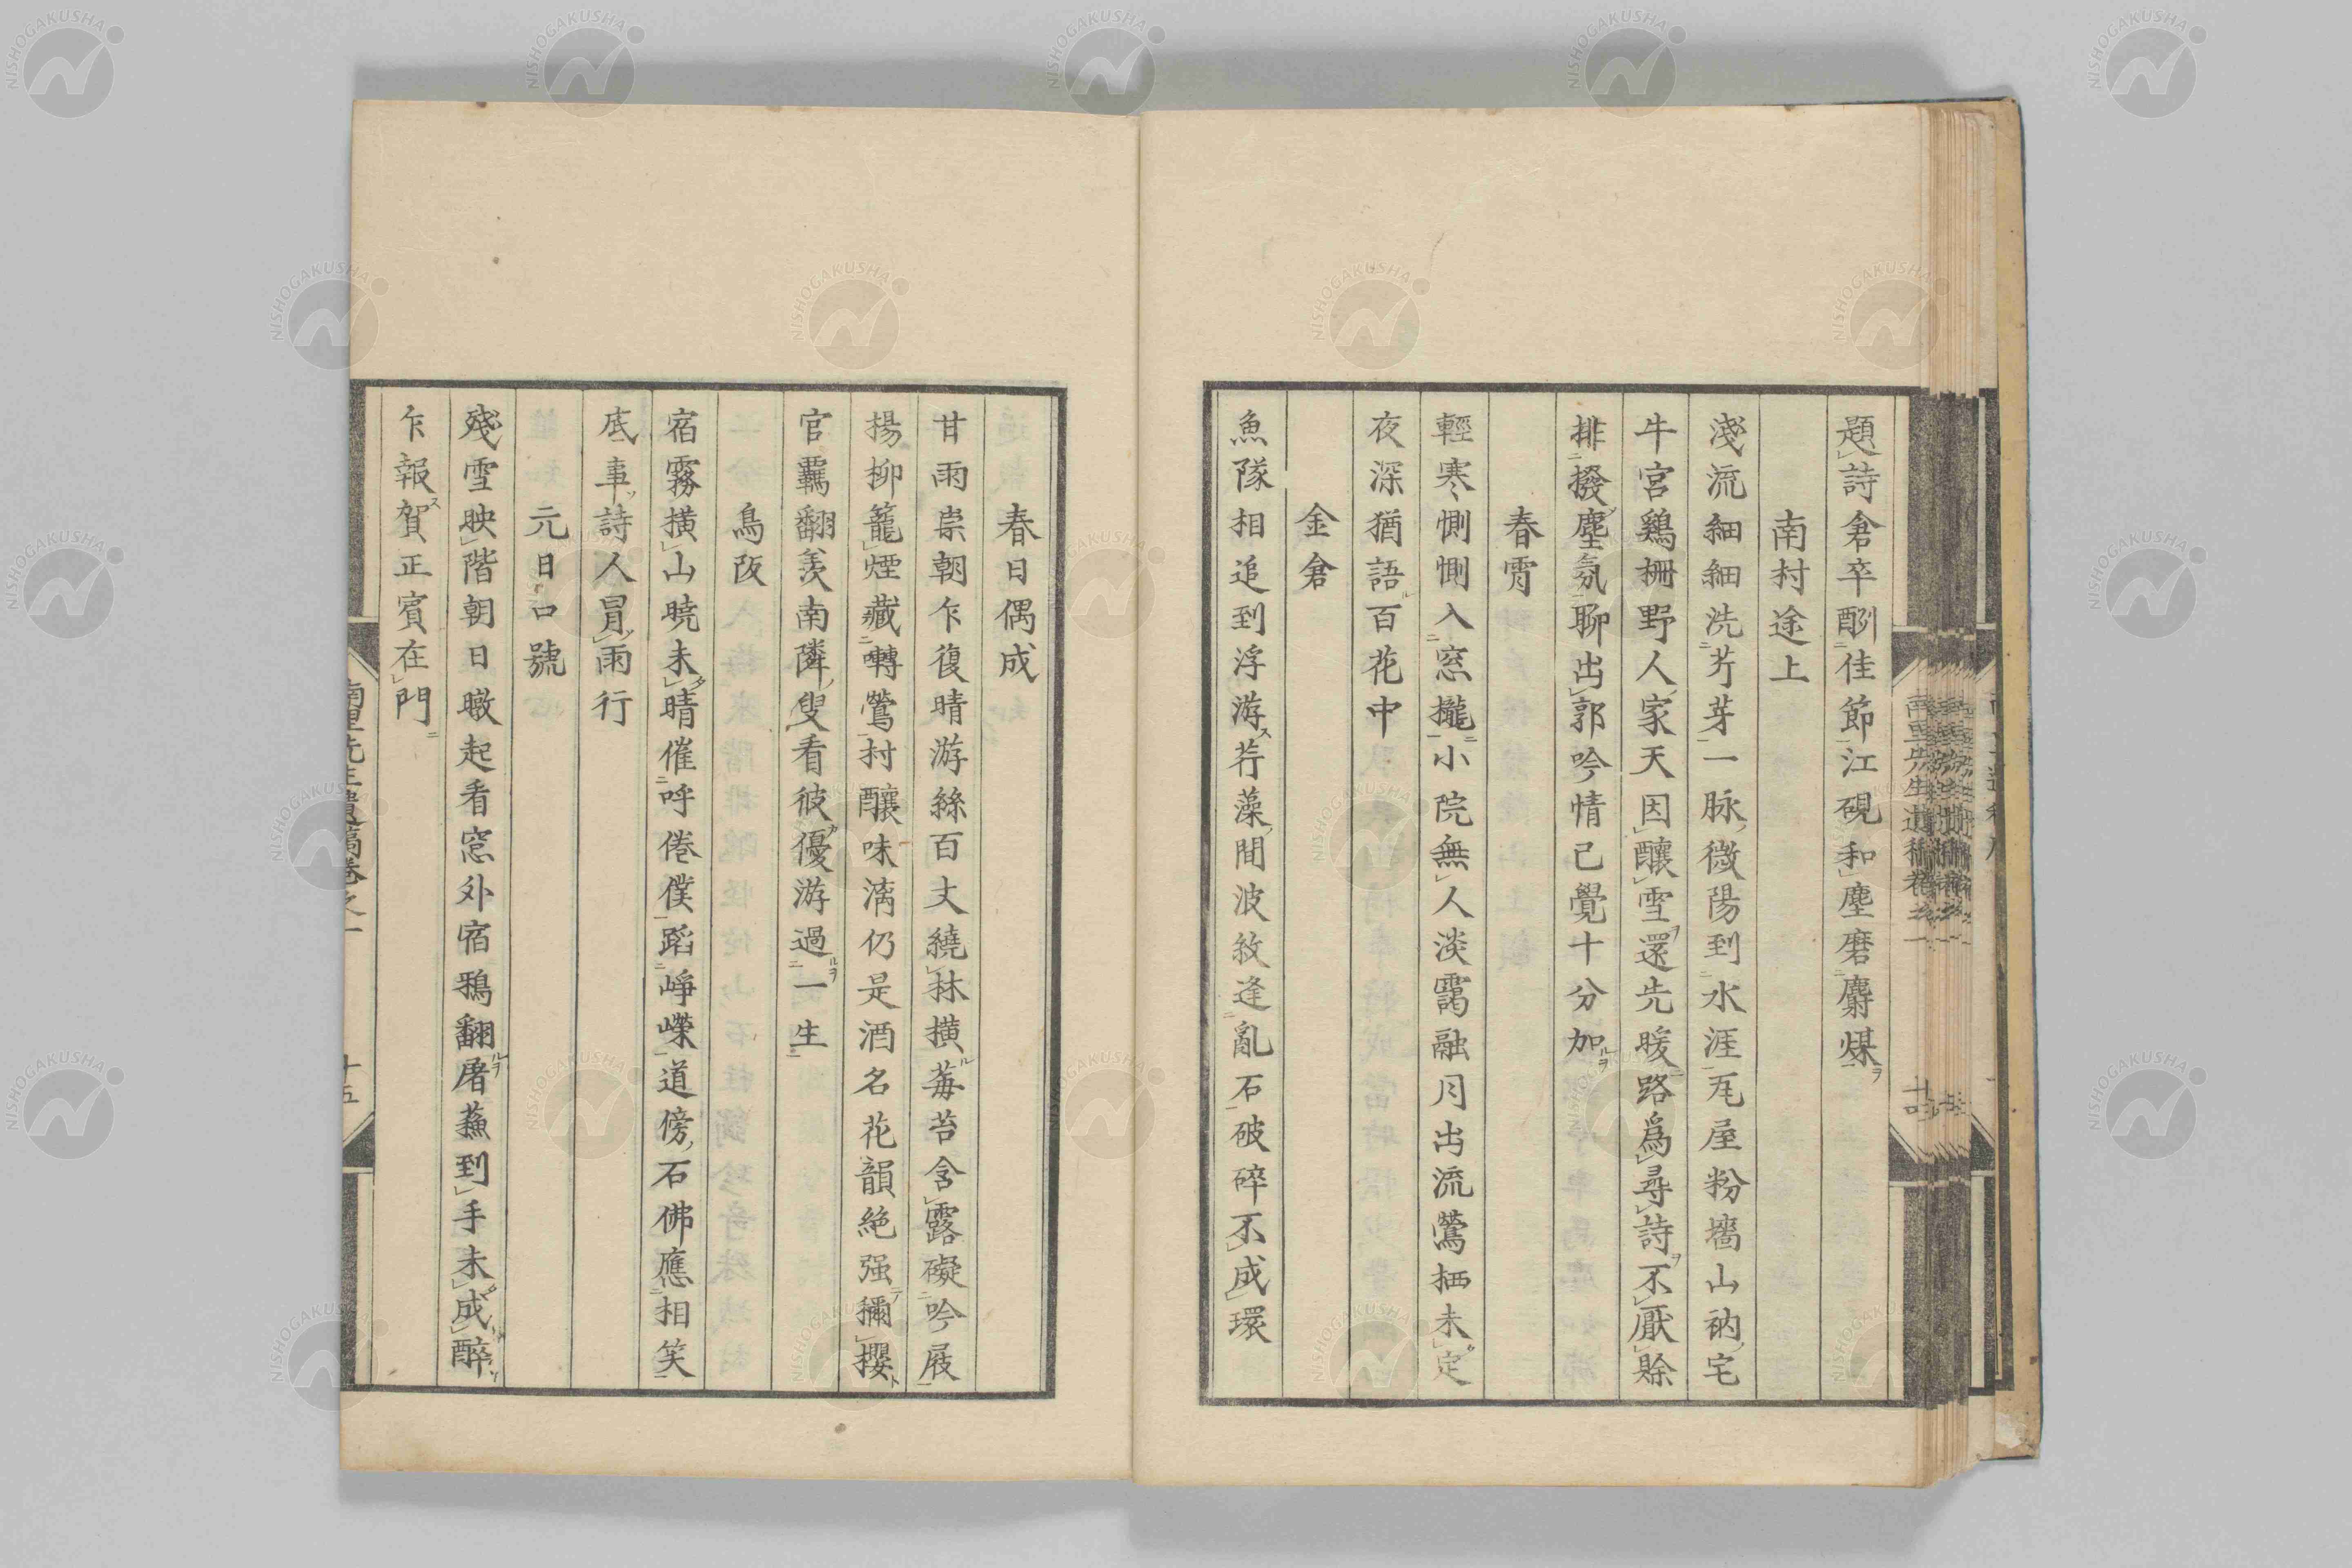 題詩倉卒酬佳節江硯和塵磨麝煤
南村途上
淺流細細洗芹芽一脉微陽到水涯瓦屋粉墻山衲宅
牛宮鷄柵野人家天因釀雪還先暖路爲尋詩不厭賖
排撥塵氛聊出郭吟情已覺十分加
春宵
輕寒惻惻入窓櫳小院無人淡靄融月出流鶯栖未定
夜深猶語百花中
金倉
魚隊相追到浮游荇藻間波紋逢亂石破碎不成環
春日偶成
甘雨崇朝乍復晴游絲百丈繞林橫莓苔含露礙吟屐
楊柳籠煙藏囀鶯村釀味漓仍是酒名花韻絶强稱櫻
官覊翻羨南隣叟看彼優游過一生
鳥阪
宿霧橫山曉未晴催呼倦僕蹈崢嶸道傍石佛應相笑
底事詩人冒雨行
元日口號
殘雪映階朝日暾起看窓外宿鴉翻屠蘇到手未成醉
乍報賀正賓在門
南里先生遺稿卷之一
十五
南里先生遺稿卷之一
十四
NISHOGAKUSHA